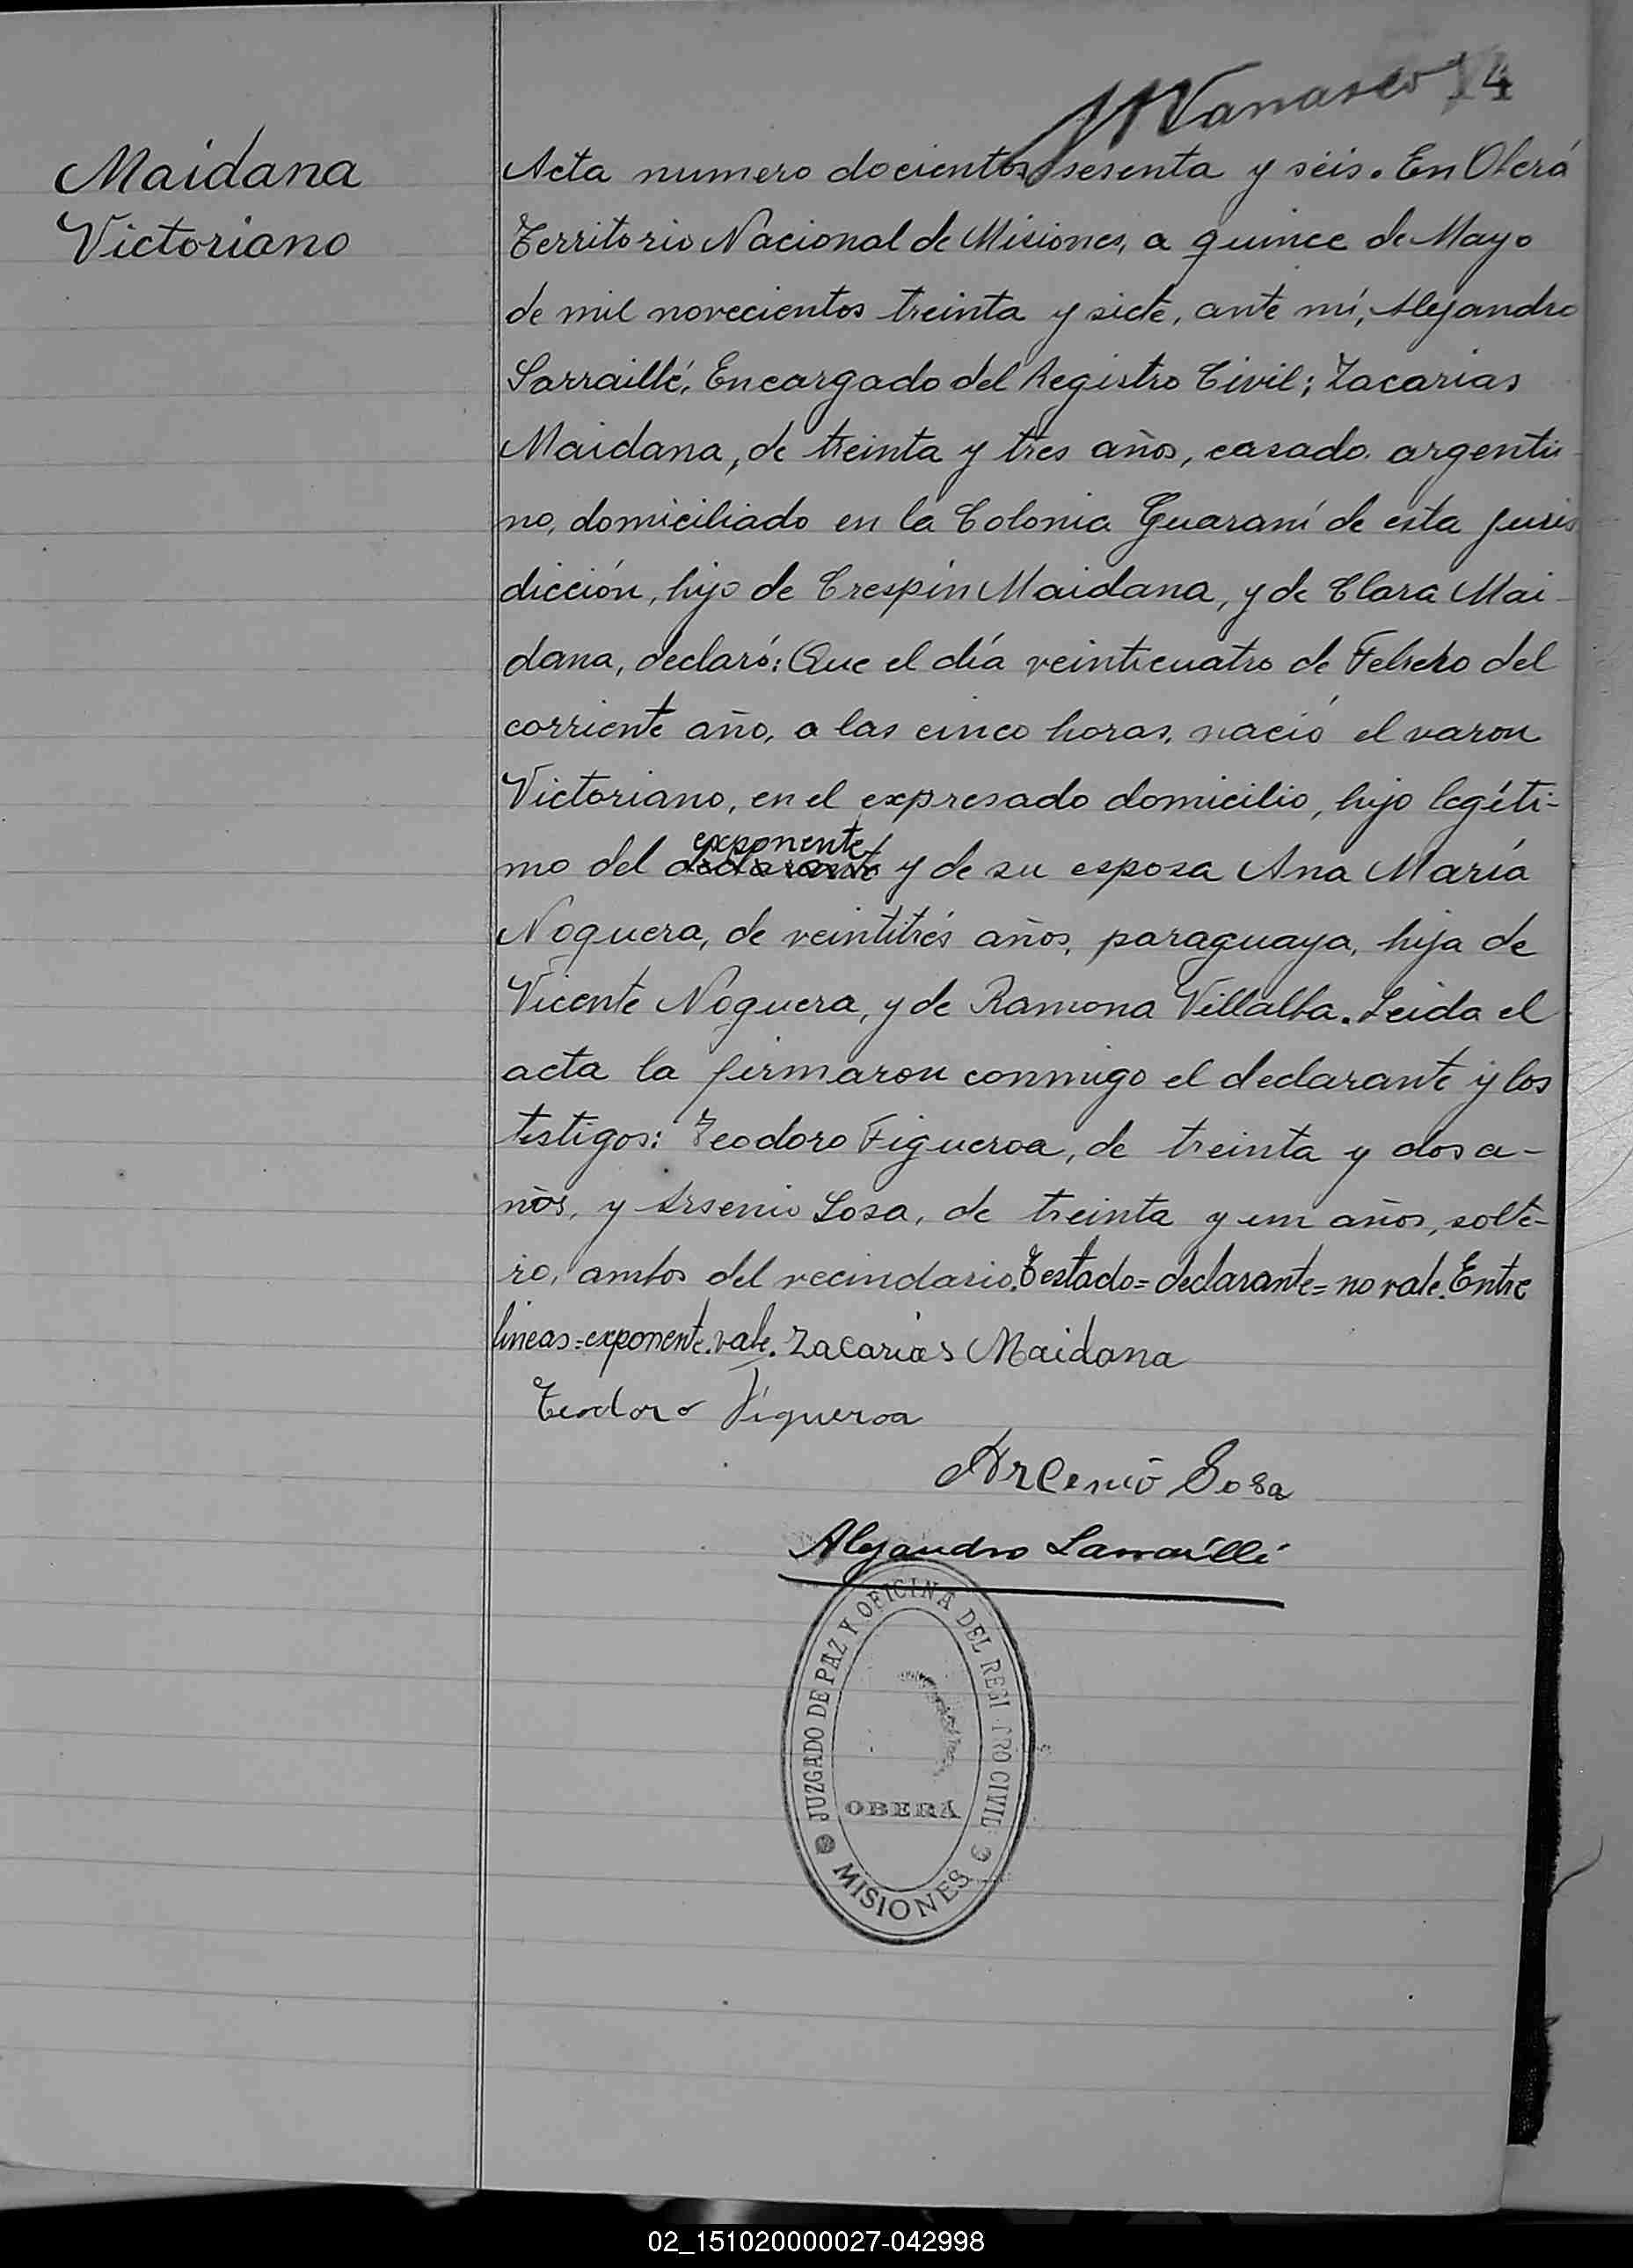 4
Maidana
Victoriano
Acta numero docientos sesenta y seis. En Oberá
Territorio Nacional de Misiones, a quince de Mayo
de mil novecientos treinta y siete, ante mí, Alejandro
Sarraillé, Encargado del Registro Civil; Zacarias
Maidana, de treinta y tres años, casado, argenti-
no, domiciliado en la Colonia Guaraní de esta juris
dicción, hijo de Crespin Maidana, y de Clara Mai-
dana, declaró: Que el día veinticuatro de Febrero del
corriente año, a las cinco horas, nació el varon
Victoriano, en el expresado domicilio, hijo legíti-
exponente
mo del declarante y de su esposa Ana María
Noguera, de veintitrés años, paraguaya, hija de
Vicente Noguera, y de Ramona Villalba. Leida el
acta la firmaron conmigo el declarante y los
testigos: Teodoro Figueroa, de treinta y dos a-
ños, y Arsenio Sosa, de treinta y un años, solte-
ro, ambos del vecindario. Testado=declarante=no vale. Entre
lineas=exponente.vale. Zacarias Maidana
Teodoro Figueroa
Arcenio Sosa
Alejandro Sarraillé
JUZGADO DE PAZ Y OFICINA DEL REGI TRO CIVIL
OBERÁ
MISIONES
02_151020000027-042998